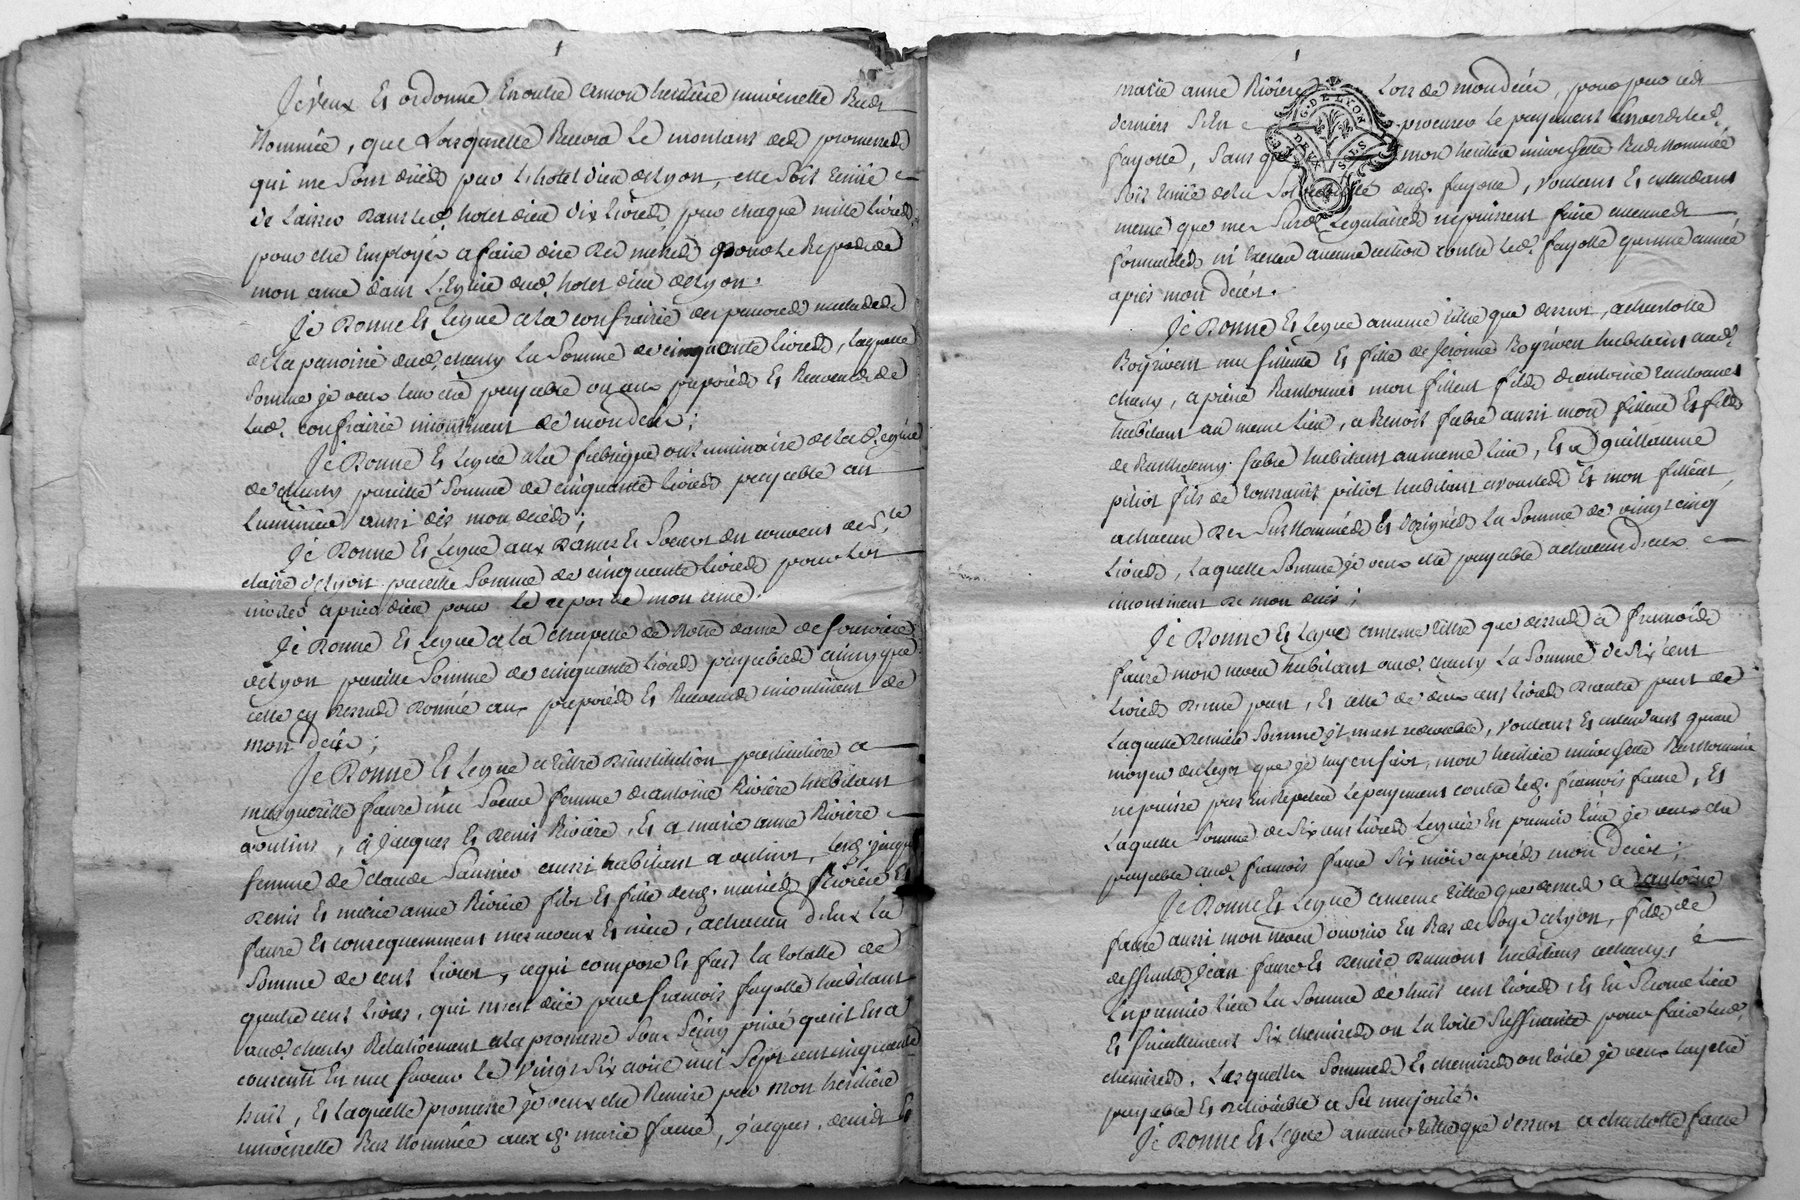 Je veux Et ordonne En outre a mon heritiere universelle Bas
Nommée, que Lorsquelle Recevra Le montant des promesses
qui me sont düës par L'hotel dieu de Lyon, elle soit tenüe
de Laisser dans led. hotel dieu dix livres pour chaque mille livres
pour etre Employé a faire dire des messes pour Le Repos de
mon ame dans L'Eglise dud. hotel dieu de Lyon.
Je Donne Et Legue a la confrairie des pauvres malades
de la paroisse dud. charly La Somme de cinquante livres, laquelle
Somme je veux leur etre payable ou aux preposés Et Receveurs de
lad. confrairie incontinent de mon decés;
Je Donne Et Legue a la fabrique ou Luminaire de lad. eglise
de charly pareille Somme de cinquante livres payable au
Luminier aussi dès mon decès;
Je Donne Et Legue aux Dames Et Soeurs du couvent de Ste
claire de Lyon pareille Somme de cinquante livres pour les
inviter a prier dieu pour le repos de mon ame.
Je Donne Et Legue a la chapelle de Notre dame de fourviere
de Lyon pareille Somme de cinquante livres payables ainsy que
celle cy dessus donnée aux preposés Et Receveurs incontinent de
mon decès;
Je Donne Et Legue a titre d'institution particuliere a
marguerite faure ma Soeur femme d'antoine Riviere habitant
a oulins, à Jacques Et denis Riviere, Et a marie anne Riviere
femme de claude Saunier aussi habitant a oulins, lesd. jacques
denis Et marie anne Riviere fils Et fille desd. mariés Riviere Et
faure Et consequemment mes neveux Et niece, a chacun d'Eux La
Somme de cent livres, ce qui compose Et fait la totalle de
quatre cent livres, qui m'est düe par francois fayolle habitant
aud. charly Relativement a la promesse Sous Seing privé qu'il en a
consenti En ma faveur le vingt Six avril mil Sept cent cinquante
huit, Et laquelle promesse je veux etre Remise par mon heritiere
universelle Bas Nommée aux d. marie faure, jacques, denis Et
marie anne Riviere Lors de mon decés, pour par ces
derniers S'En procurer le payement Envers led.
fayolle, Sans que mon heritiere universelle Bas Nommée
Soit tenüe de la Solvabilité dud. fayolle, voulant Et entendant
meme que mes Susd. Legataires ne puissent faire aucunes
poursuites ni Exercer aucune action contre led. fayolle qu'une année
après mon decés.
Je Donne Et Legue a meme titre que dessus, a charlotte
Boyrivent ma filleule Et fille de Jerome Boyrivent habitant aud.
charly, a pierre Rantonnet mon filleul fils d'antoine Rantonnet
habitant au meme lieu, a Benoit fabre aussi mon filleul Et fils
de Barthelemy fabre habitant au meme lieu, Et a guillaume
pitiot fils de toussaint pitiot habitant a vourles Et mon filleul,
a chacun des Sus Nommés Et designés La Somme de vingt cinq
Livres, Laquelle Somme je veux etre payable a chacun d'eux
incontinent de mon decés;
Je Donne Et Legue a meme titre que dessus à francois
faure mon neveu habitant aud. charly La Somme de Six cent
livres d'une part, Et celle de deux cent livres d'autre part de
Laquelle derniere Somme il m'est redevable, voulant Et entendant qu'au
moyen du Legat que je luy en fais, mon heritiere universelle Bas Nommée
ne puisse pas En Repeter Le payement contre led. francois faure, Et
Laquelle Somme de Six cent livres Leguée En premier lieu je veux etre
payable aud. francois faure Six mois après mon decés;
Je Donne Et Legue a meme titre que dessus a antoine
faure aussi mon neveu ouvrier En Bas de Soye a Lyon, fils de
deffunts Jean faure Et denise Dumont habitans a charly,
En premier lieu La Somme de huit cent livres, Et En Second lieu
Et finallement Six chemises ou La toile Suffisante pour faire lesd.
chemises. Lesquelles Sommes Et chemises ou toile je veux luy etre
payable Et delivrable a Sa majorité.
Je Donne Et Legue a meme titre que dessus a charlotte faure
G. DE LYON
DEUX SOLS